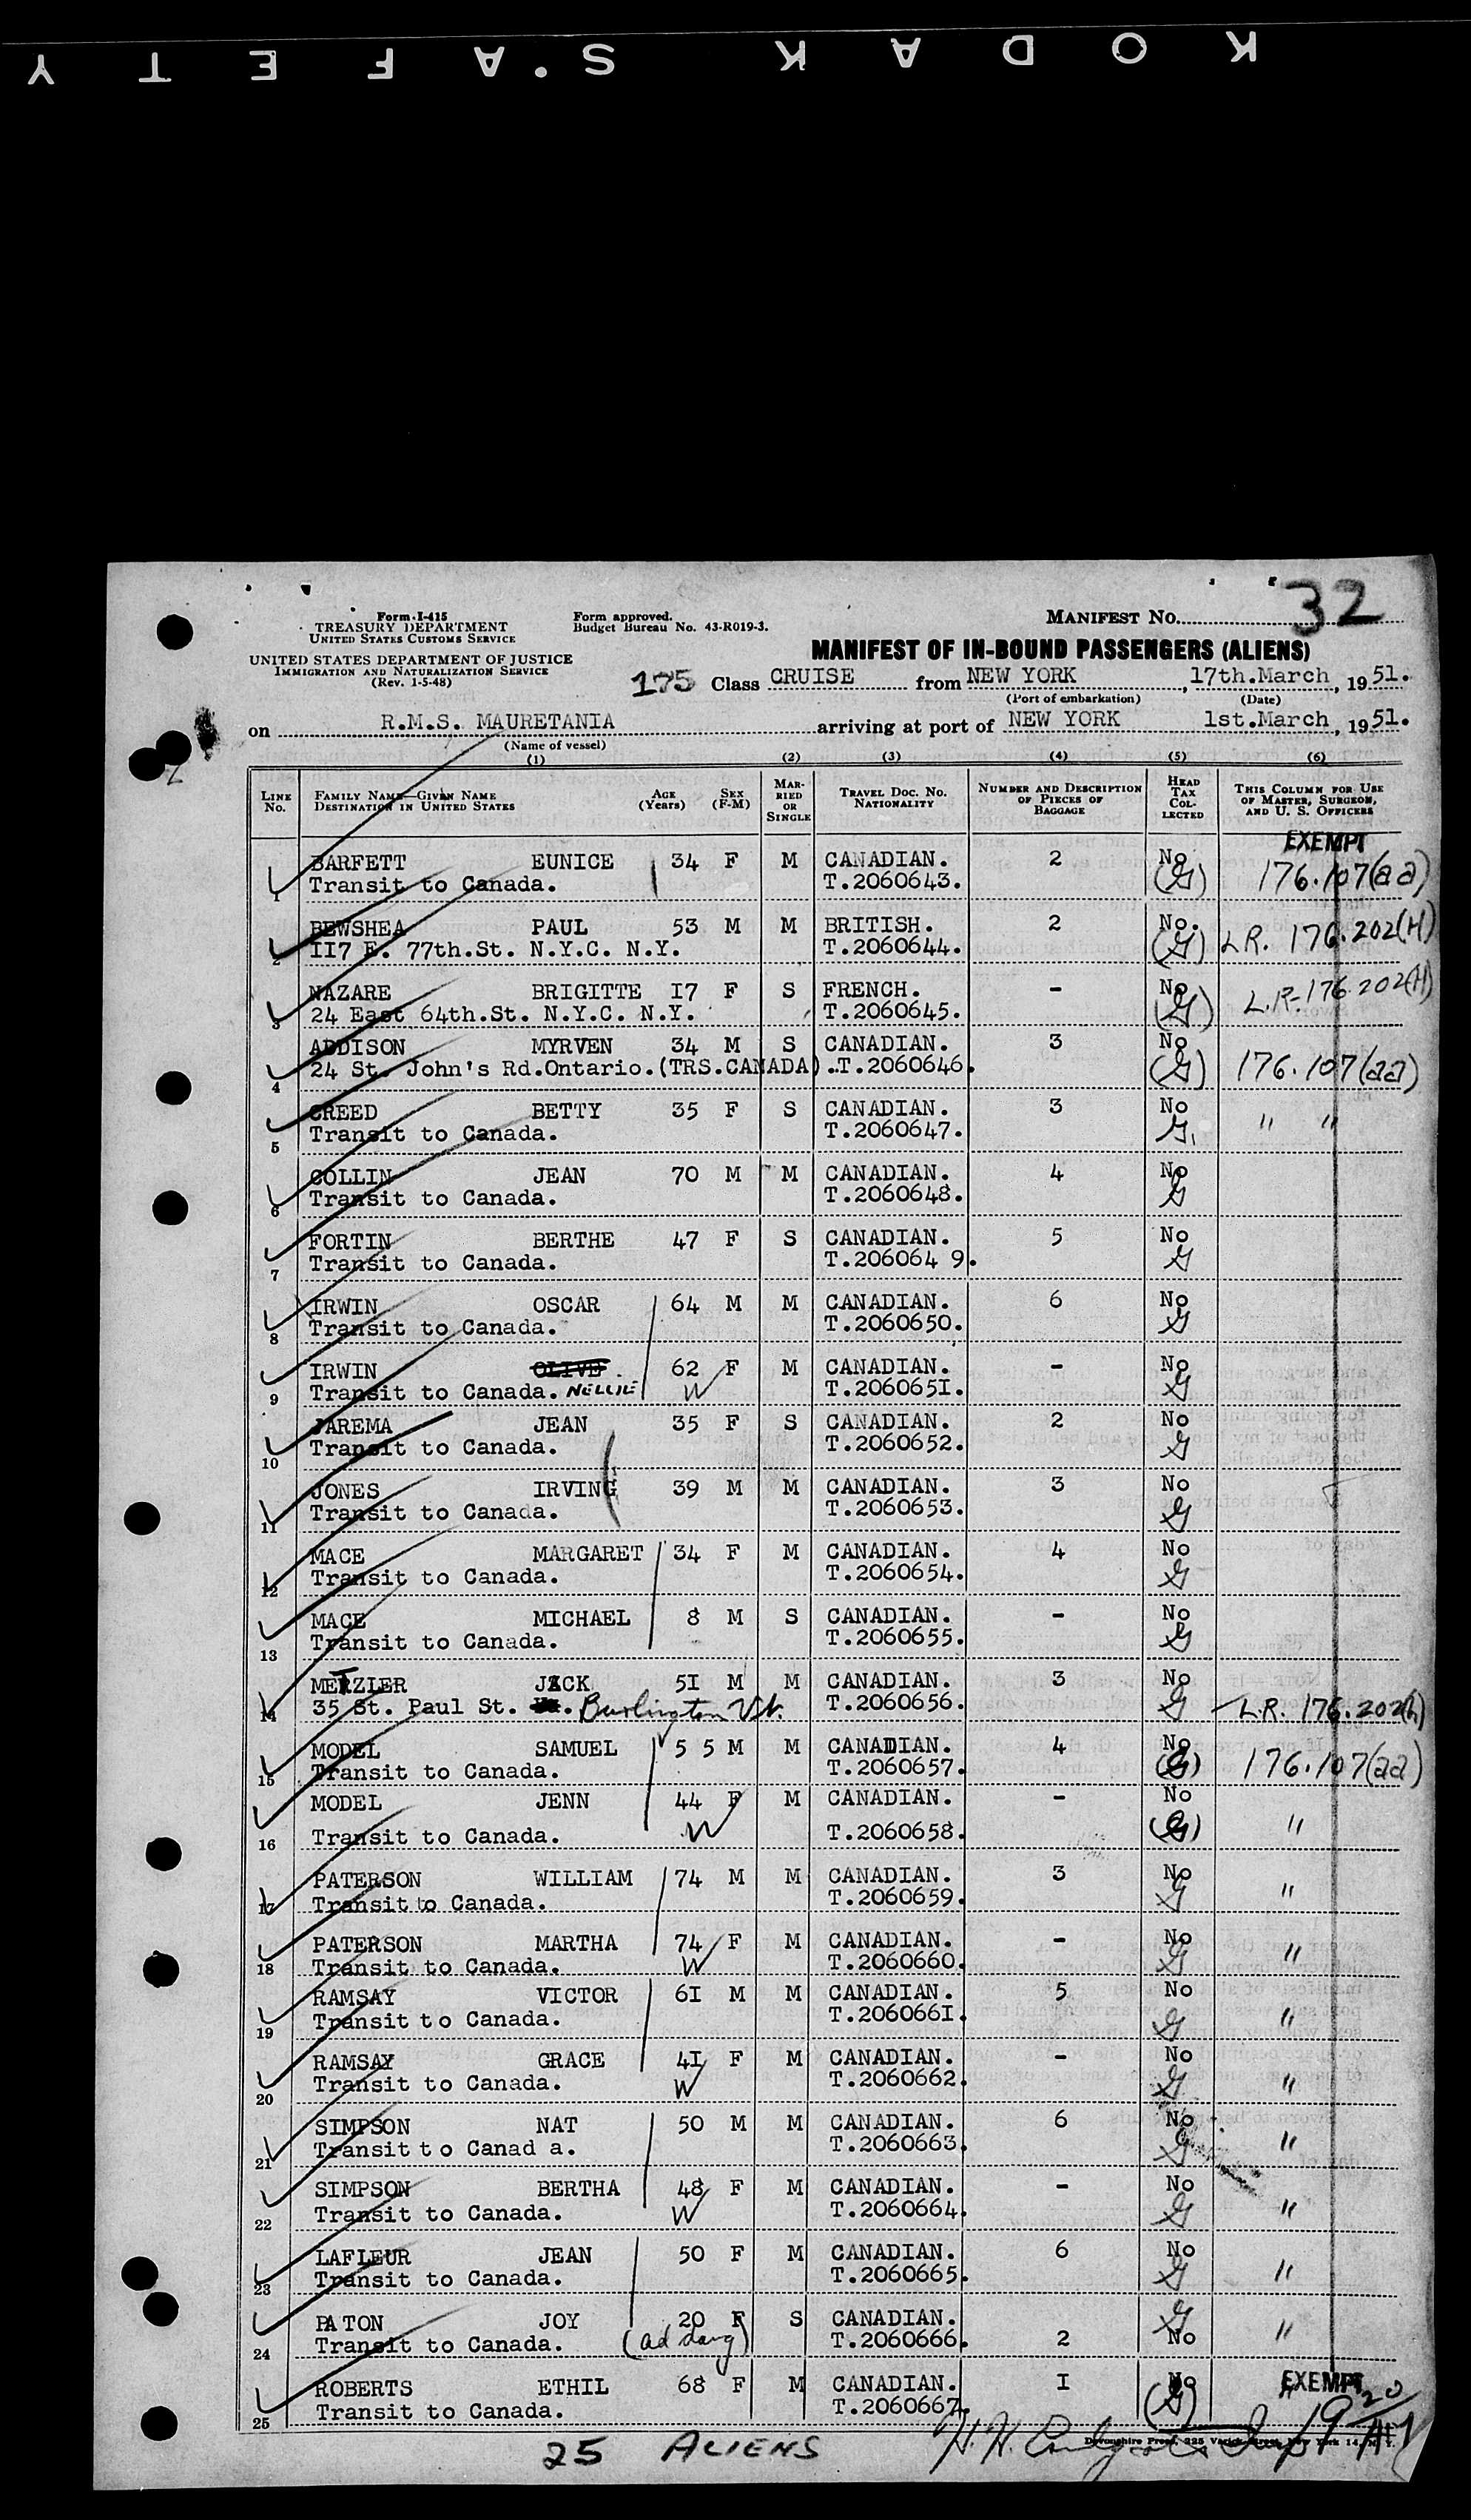 KODAK SAFETY
32
Form I-415
TREASURY DEPARTMENT
UNITED STATES CUSTOMS SERVICE
Form approved.
Budget Bureau No. 43-R019-3.
MANIFEST No.
UNITED STATES DEPARTMENT OF JUSTICE
IMMIGRATION AND NATURALIZATION SERVICE
(Rev. 1-5-48)
MANIFEST OF IN-BOUND PASSENGERS (ALIENS)
175 Class CRUISE from NEW YORK, 17th.March, 1951.
(Port of embarkation) (Date)
on R.M.S. MAURETANIA arriving at port of NEW YORK 1st.March, 1951.
(Name of vessel)
(1) (2) (3) (4) (5) (6)
LINE No. FAMILY NAME—GIVEN NAME DESTINATION IN UNITED STATES AGE (Years) SEX (F-M) MARRIED OR SINGLE TRAVEL DOC. NO. NATIONALITY NUMBER AND DESCRIPTION OF PIECES OF BAGGAGE HEAD TAX COLLECTED THIS COLUMN FOR USE OF MASTER, SURGEON, AND U. S. OFFICERS
EXEMPT
BARFETT EUNICE 34 F M CANADIAN. 2 No
1 Transit to Canada. T.2060643. (G) 176.107(aa)
BEWSHEA PAUL 53 M M BRITISH. 2 No.
2 II7 E. 77th.St. N.Y.C. N.Y. T.2060644. (G) L.R. 176.202(H)
NAZARE BRIGITTE I7 F S FRENCH. - No
3 24 East 64th.St. N.Y.C. N.Y. T.2060645. (G) L.R. 176.202(H)
ADDISON MYRVEN 34 M S CANADIAN. 3 No
4 24 St. John's Rd.Ontario.(TRS.CANADA)..T.2060646. (G) 176.107(aa)
CREED BETTY 35 F S CANADIAN. 3 No
5 Transit to Canada. T.2060647. G. " "
COLLIN JEAN 70 M M CANADIAN. 4 No
6 Transit to Canada. T.2060648. G
FORTIN BERTHE 47 F S CANADIAN. 5 No
7 Transit to Canada. T.206064 9. G
IRWIN OSCAR 64 M M CANADIAN. 6 No
8 Transit to Canada. T.2060650. G
IRWIN OLIVE. 62 F M CANADIAN. - No
9 Transit to Canada. NELLIE W T.206065I. G
JAREMA JEAN 35 F S CANADIAN. 2 No
10 Transit to Canada. T.2060652. G
JONES IRVING 39 M M CANADIAN. 3 No
11 Transit to Canada. T.2060653. G
MACE MARGARET 34 F M CANADIAN. 4 No
12 Transit to Canada. T.2060654. G
MACE MICHAEL 8 M S CANADIAN. - No
13 Transit to Canada. T.2060655. G
METZIER JACK 5I M M CANADIAN. 3 No
14 35 St. Paul St. Burlington Vt. T.2060656. G L.R. 176.202(h)
MODEL SAMUEL 5 5 M M CANADIAN. 4 No
15 Transit to Canada. T.2060657. (G) 176.107(aa)
MODEL JENN 44 F M CANADIAN. - No
16 Transit to Canada. W T.2060658. (G) "
PATERSON WILLIAM 74 M M CANADIAN. 3 No
17 Transit to Canada. T.2060659. G "
PATERSON MARTHA 74 F M CANADIAN. - No
18 Transit to Canada. W T.2060660. G "
RAMSAY VICTOR 6I M M CANADIAN. 5 No
19 Transit to Canada. T.206066I. G "
RAMSAY GRACE 4I F M CANADIAN. - No
20 Transit to Canada. W T.2060662. G "
SIMPSON NAT 50 M M CANADIAN. 6 No
21 Transit to Canad a. T.2060663. G "
SIMPSON BERTHA 48 F M CANADIAN. - No
22 Transit to Canada. W T.2060664. G "
LAFLEUR JEAN 50 F M CANADIAN. 6 No
23 Transit to Canada. T.2060665. G "
PATON JOY 20 F S CANADIAN. G
24 Transit to Canada. (ad daug) T.2060666. 2 No "
ROBERTS ETHIL 68 F M CANADIAN. I No EXEMPT
25 Transit to Canada. T.2060667. (G)
25 ALIENS
Devonshire Press, 225 Varick Street, New York 14, N. Y.